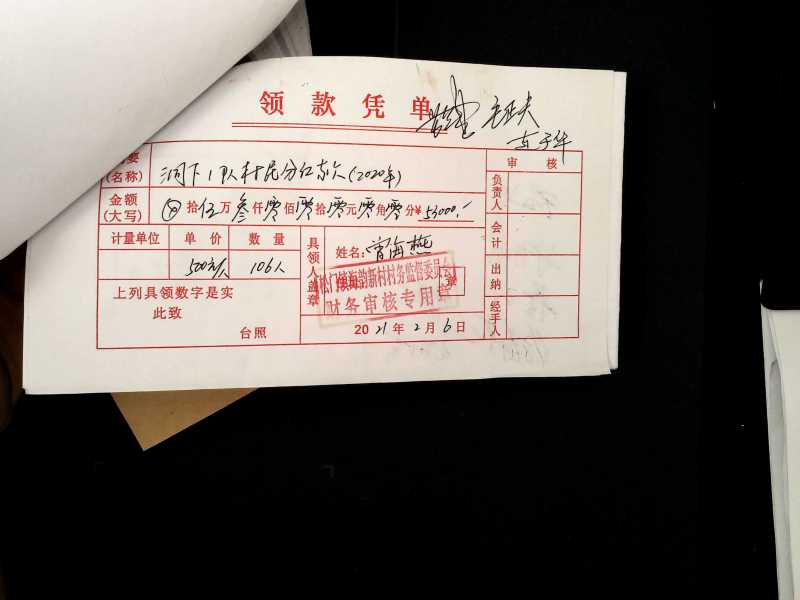 领款凭单
要 洞下1队村民分红款(2020年) 审核
(名称)
金额 ⊗拾伍万叁仟零佰零拾零元零角零分¥53000.- 负责人
(大写)
计量单位 单价 数量 具领人 姓名:曾海燕 会计
500元/人 106人 盖章 章
松门镇海韵新村村务监督委员会
财务审核专用章
上列具领数字是实 出纳
此致
台照 2021年2月6日 经手人